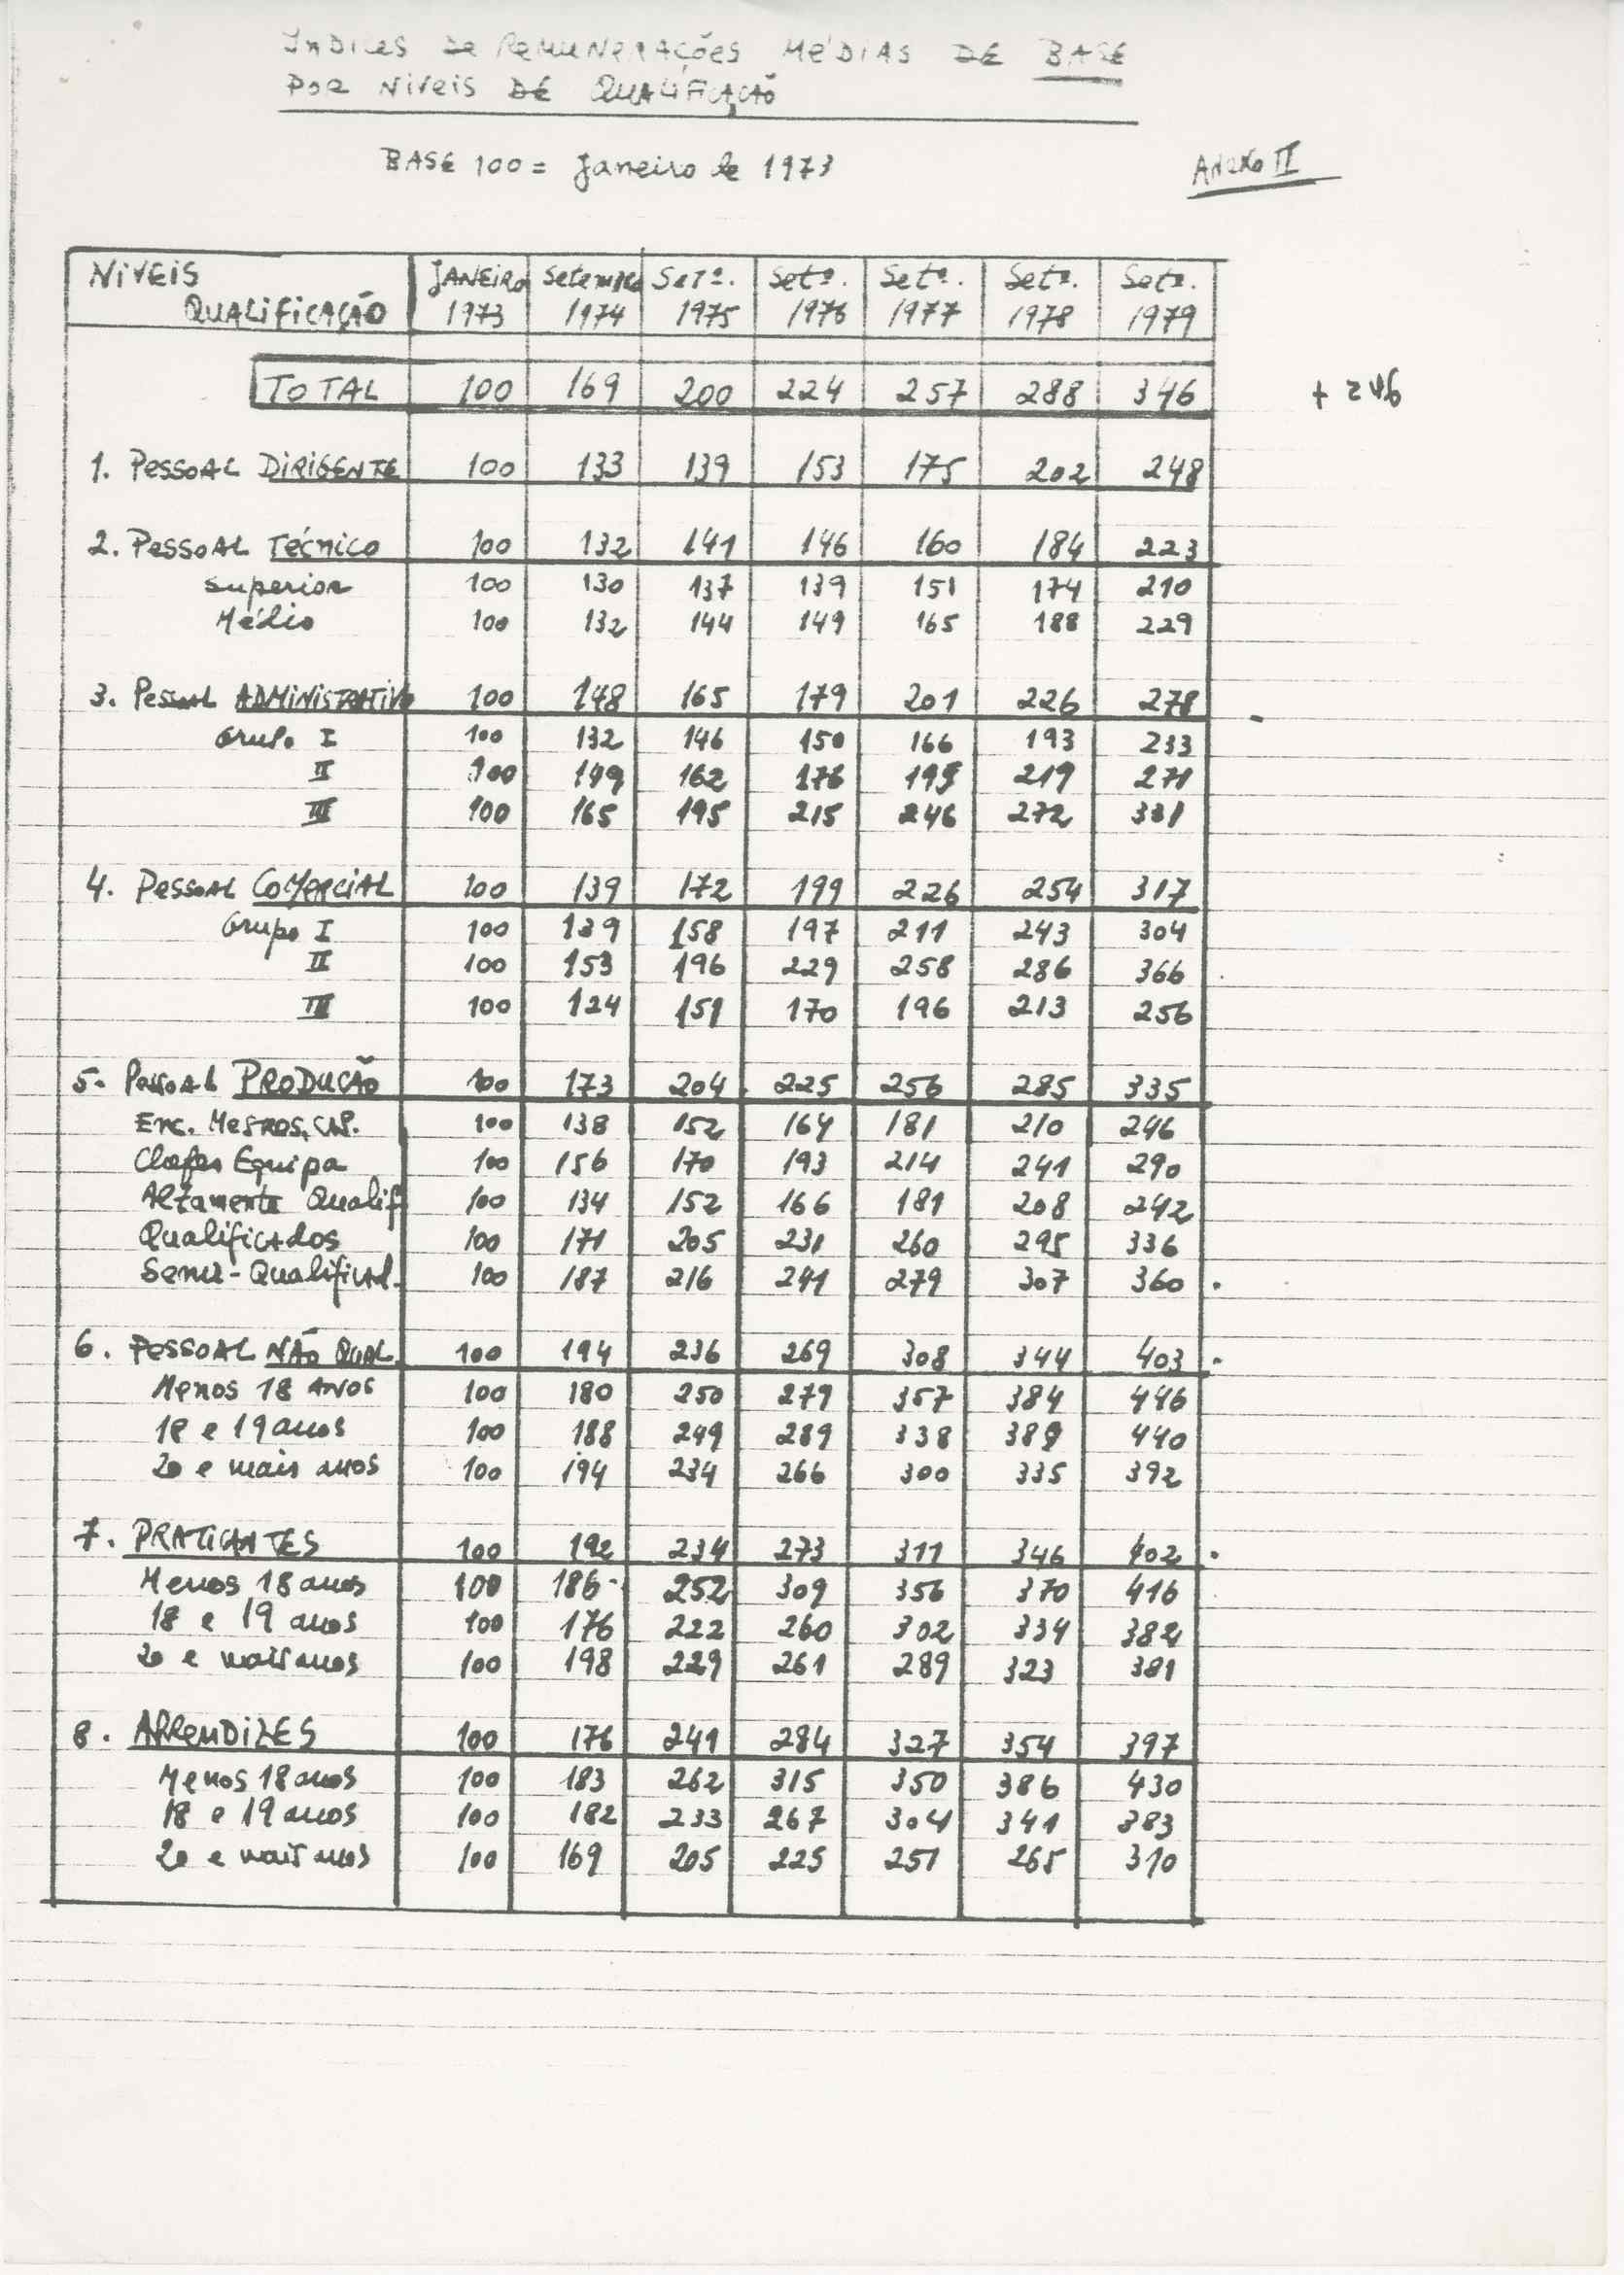 INDICES DE REMUNERAÇÕES MÉDIAS DE BASE
POR NIVEIS DE QUALIFICAÇÃO
BASE 100 = Janeiro de 1973
Anexo II
NIVEIS QUALIFICAÇÃO JANEIRO 1973 Setembro 1974 Setº. 1975 Setº. 1976 Setº. 1977 Setº. 1978 Setº. 1979
TOTAL 100 169 200 224 257 288 346 + 246
1. PESSOAL DIRIGENTE 100 133 139 153 175 202 248
2. PESSOAL TÉCNICO 100 132 141 146 160 184 223
Superior 100 130 137 139 151 174 210
Médio 100 132 144 149 165 188 229
3. Pessoal ADMINISTRATIVO 100 148 165 179 201 226 278
Grupo I 100 132 146 150 166 193 233
II 100 149 162 176 195 219 271
III 100 165 195 215 246 272 331
4. PESSOAL COMERCIAL 100 139 172 199 226 254 317
Grupo I 100 139 158 197 211 243 304
II 100 153 196 229 258 286 366
III 100 124 151 170 196 213 256
5. Pessoal PRODUCÃO 100 173 204 225 256 285 335
Enc. Mesros, 100 138 152 164 181 210 246
Chefes Equipa 100 156 170 193 214 241 290
Altamente Qualif 100 134 152 166 181 208 242
Qualificados 100 171 205 231 260 295 336
Semi-Qualificad. 100 187 216 241 279 307 360
6. PESSOAL NÃO QUAL. 100 194 236 269 308 344 403
Menos 18 anos 100 180 250 279 357 384 446
18 e 19 anos 100 188 249 289 338 389 440
20 e mais anos 100 194 234 266 300 335 392
7. PRATICANTES 100 192 234 273 311 346 402
Menos 18 anos 100 186 252 309 356 370 416
18 e 19 anos 100 176 222 260 302 334 382
20 e mais anos 100 198 229 261 289 323 381
8. APRENDIZES 100 176 241 284 327 354 397
Menos 18 anos 100 183 262 315 350 386 430
18 e 19 anos 100 182 233 267 304 341 383
20 e mais anos 100 169 205 225 251 265 310